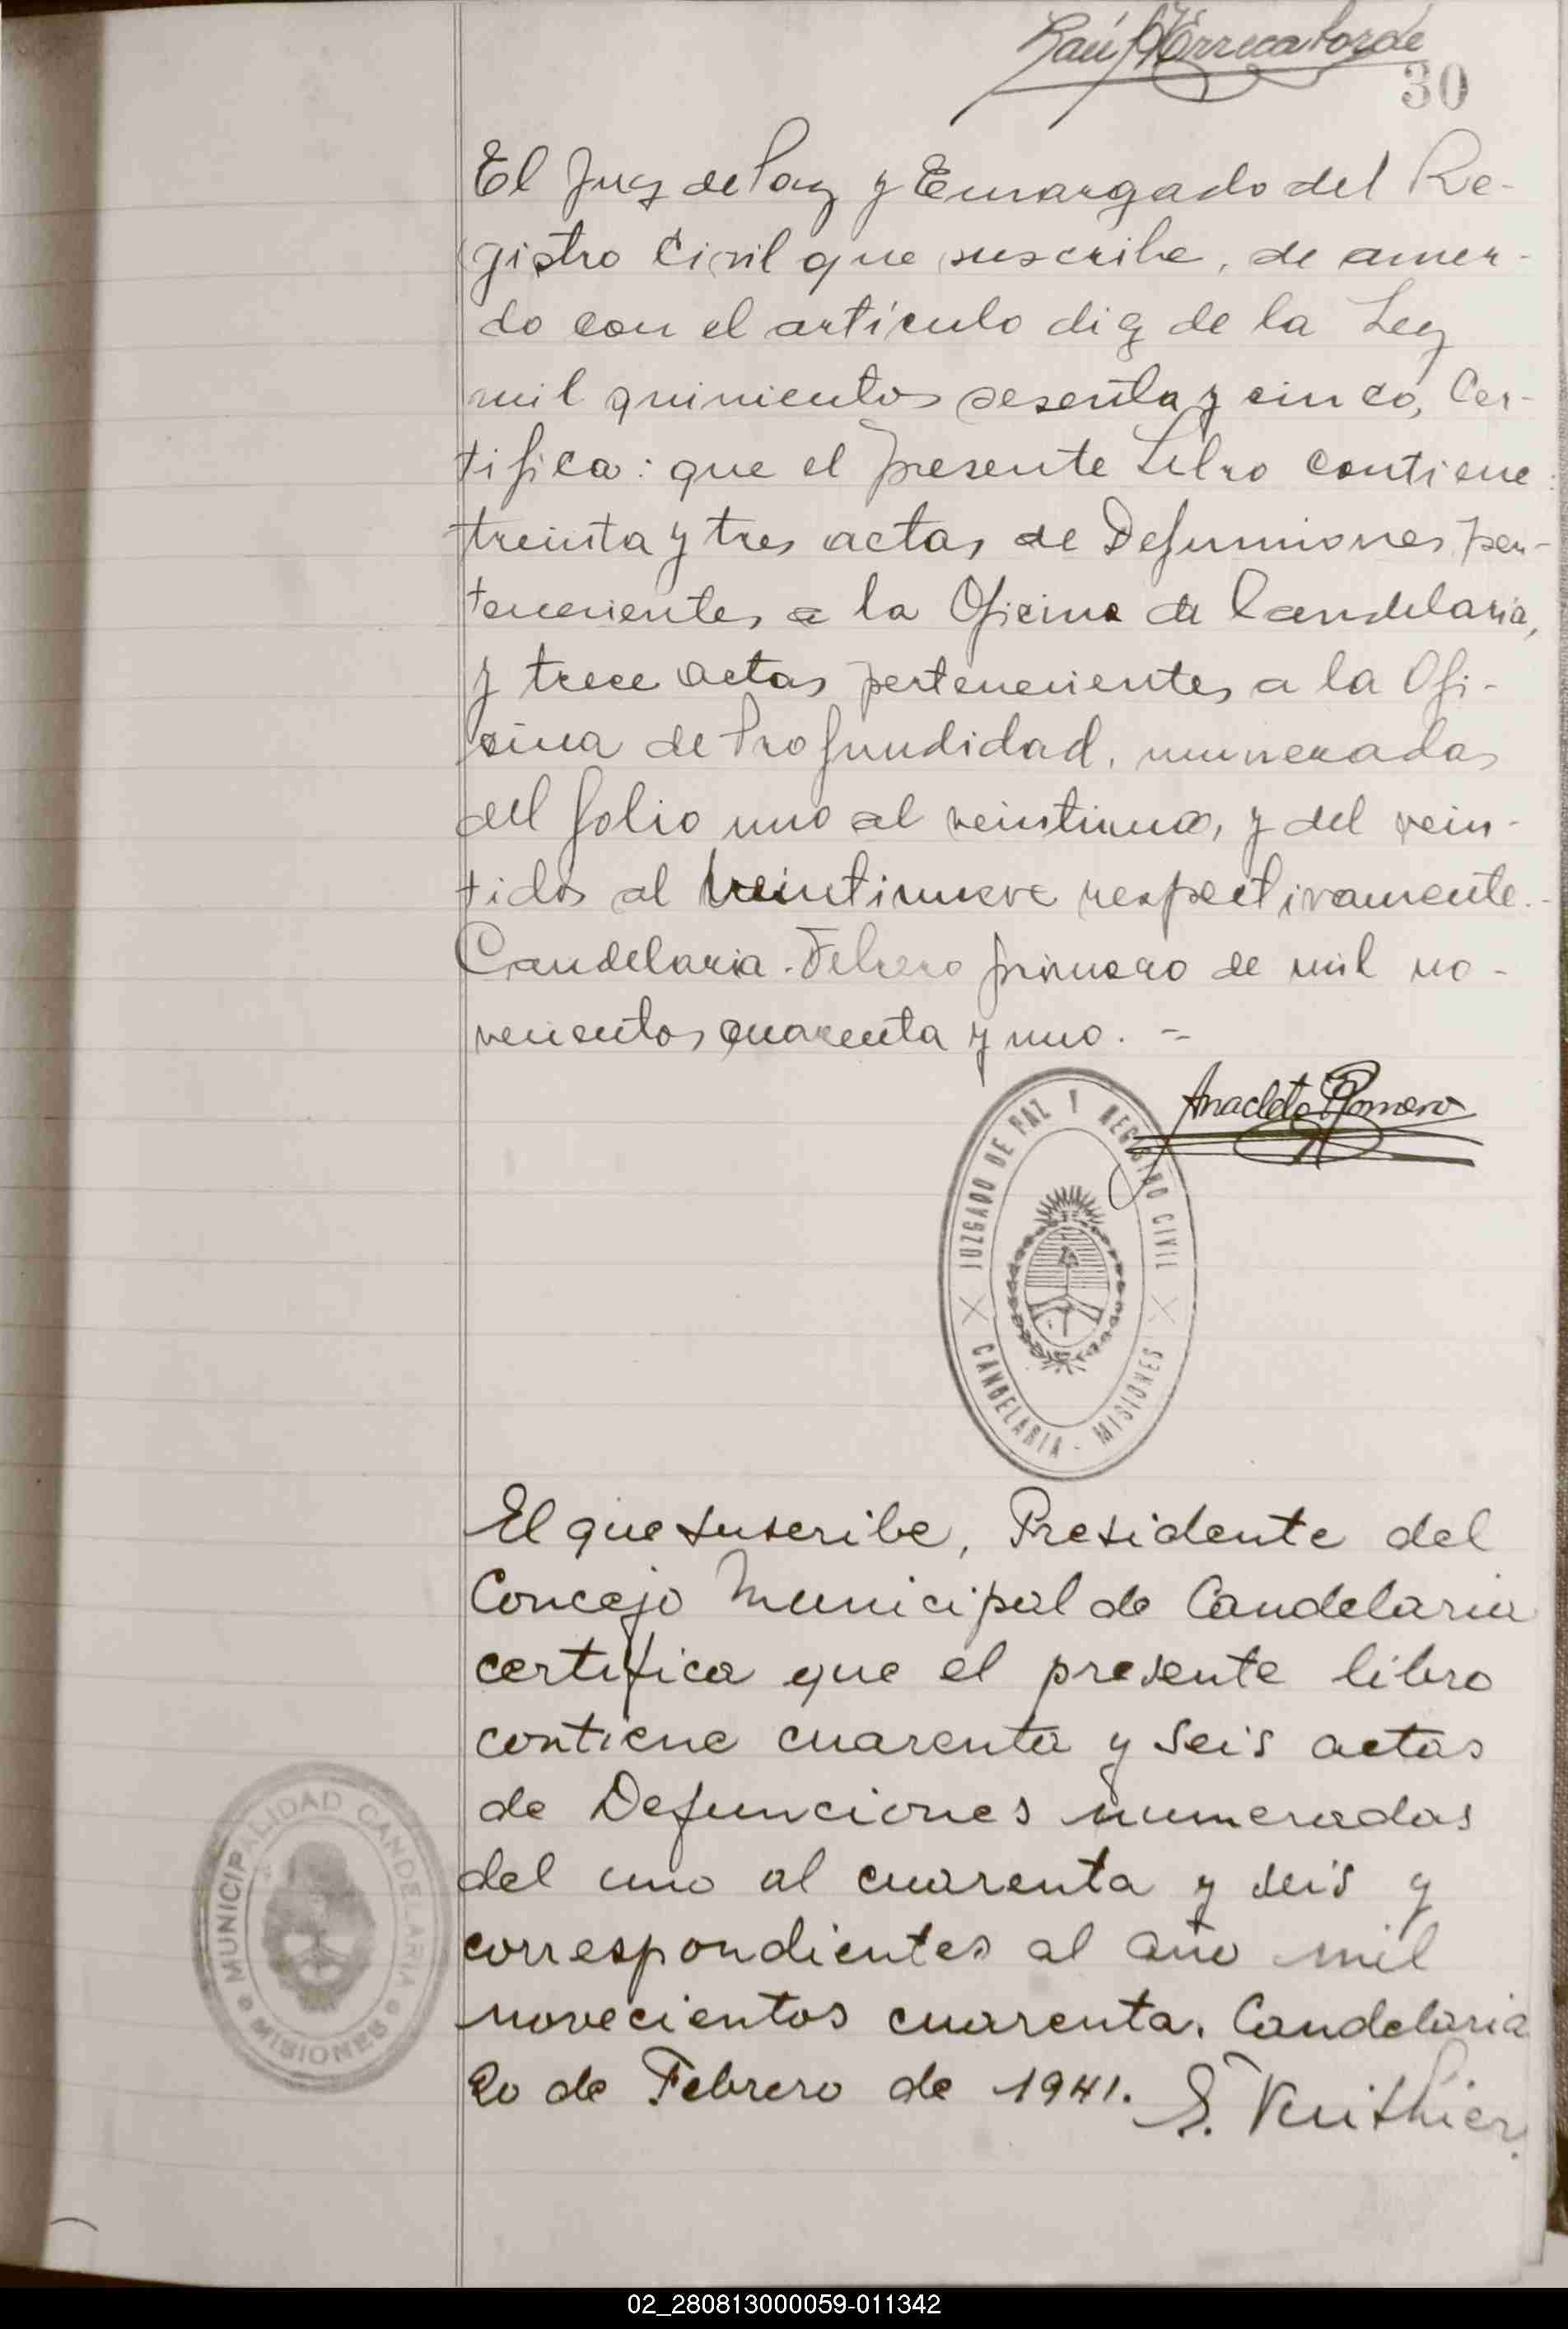 Raúl Errecaborde
30
El Juez de Paz y Encargado del Re-
gistro Civil que suscribe, de acuer-
do con el artículo diez de la Ley
mil quinientos sesenta y cinco, Cer-
tifica: que el presente Libro contiene:
treinta y tres actas de Defunciones per-
tenecientes a la Oficina de Candelaria,
y trece actas pertenecientes a la Ofi-
cina de Profundidad, numeradas
del folio uno al veintiuno, y del vein-
tidos al veintinueve respectivamente.-
Candelaria. Febrero primero de mil no-
vecientos cuarenta y uno. =
Anacleto Romero
JUZGADO DE PAZ Y REGISTRO CIVIL
CANDELARIA - MISIONES
El que suscribe, Presidente del
Concejo Municipal de Candelaria
certifica que el presente libro
contiene cuarenta y seis actas
de Defunciones numeradas
del uno al cuarenta y seis y
correspondientes al año mil
novecientos cuarenta. Candelaria
20 de Febrero de 1941. S.
MUNICIPALIDAD CANDELARIA
MISIONES
02_280813000059-011342